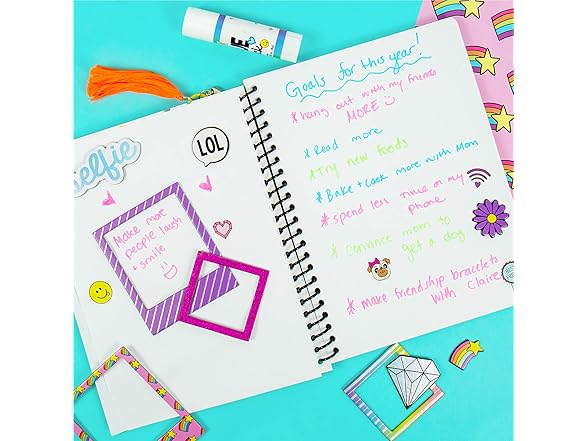 selfie
LOL
Make more
people laugh
+ smile
Goals for this year!
hang out with my friends
MORE
Read more
Try new foods
Bake + cook more with Mom
spend less time on my
phone
convince mom to
get a dog
Make friendship bracelets
With Claire